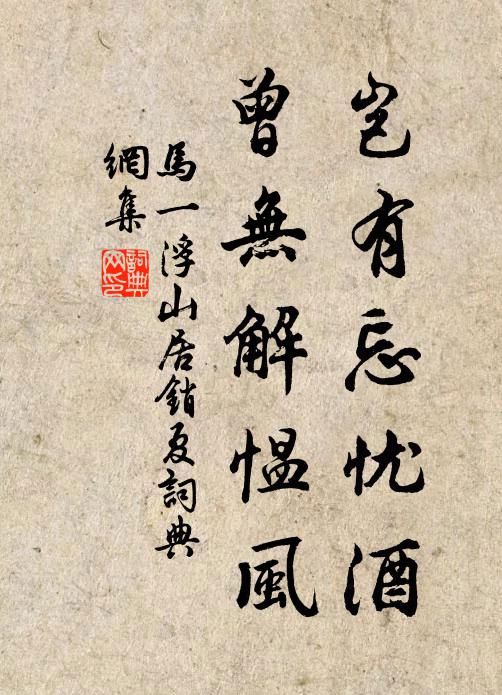 岂有忘忧酒
曾無解愠風
馬一浮山居銷夏詞典
網集
詞典网印